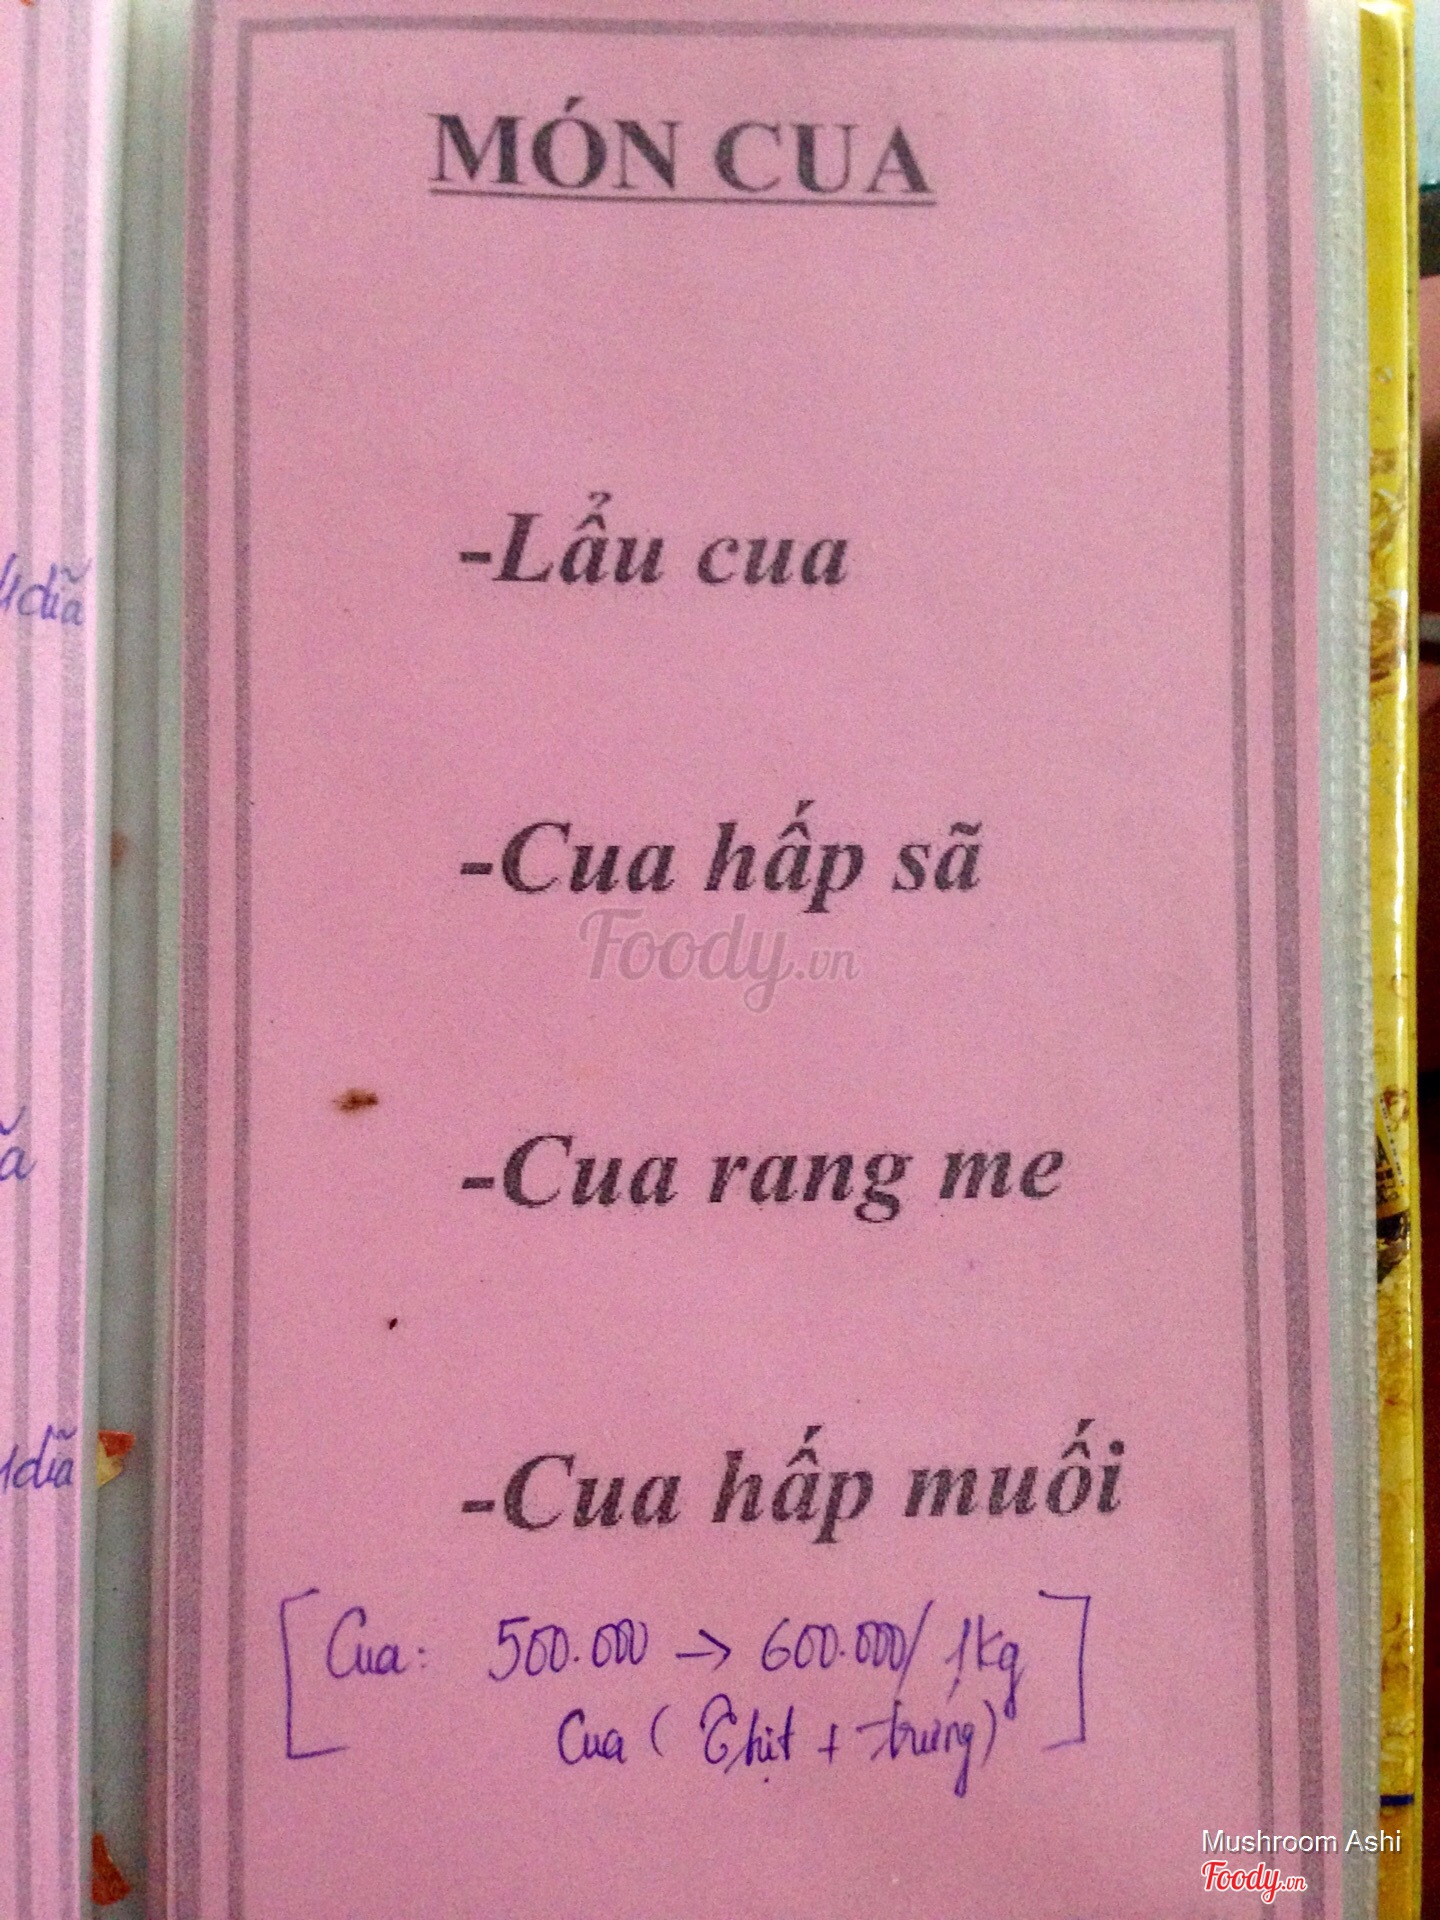 MÓN CUA
-Lẩu cua
-Cua hấp sã
Foody.vn
-Cua rang me
-Cua hấp muối
[Cua: 500.000 → 600.000/1kg]
Cua (Thịt + trứng)
1dĩa
1dĩa
Mushroom Ashi
Foody.vn